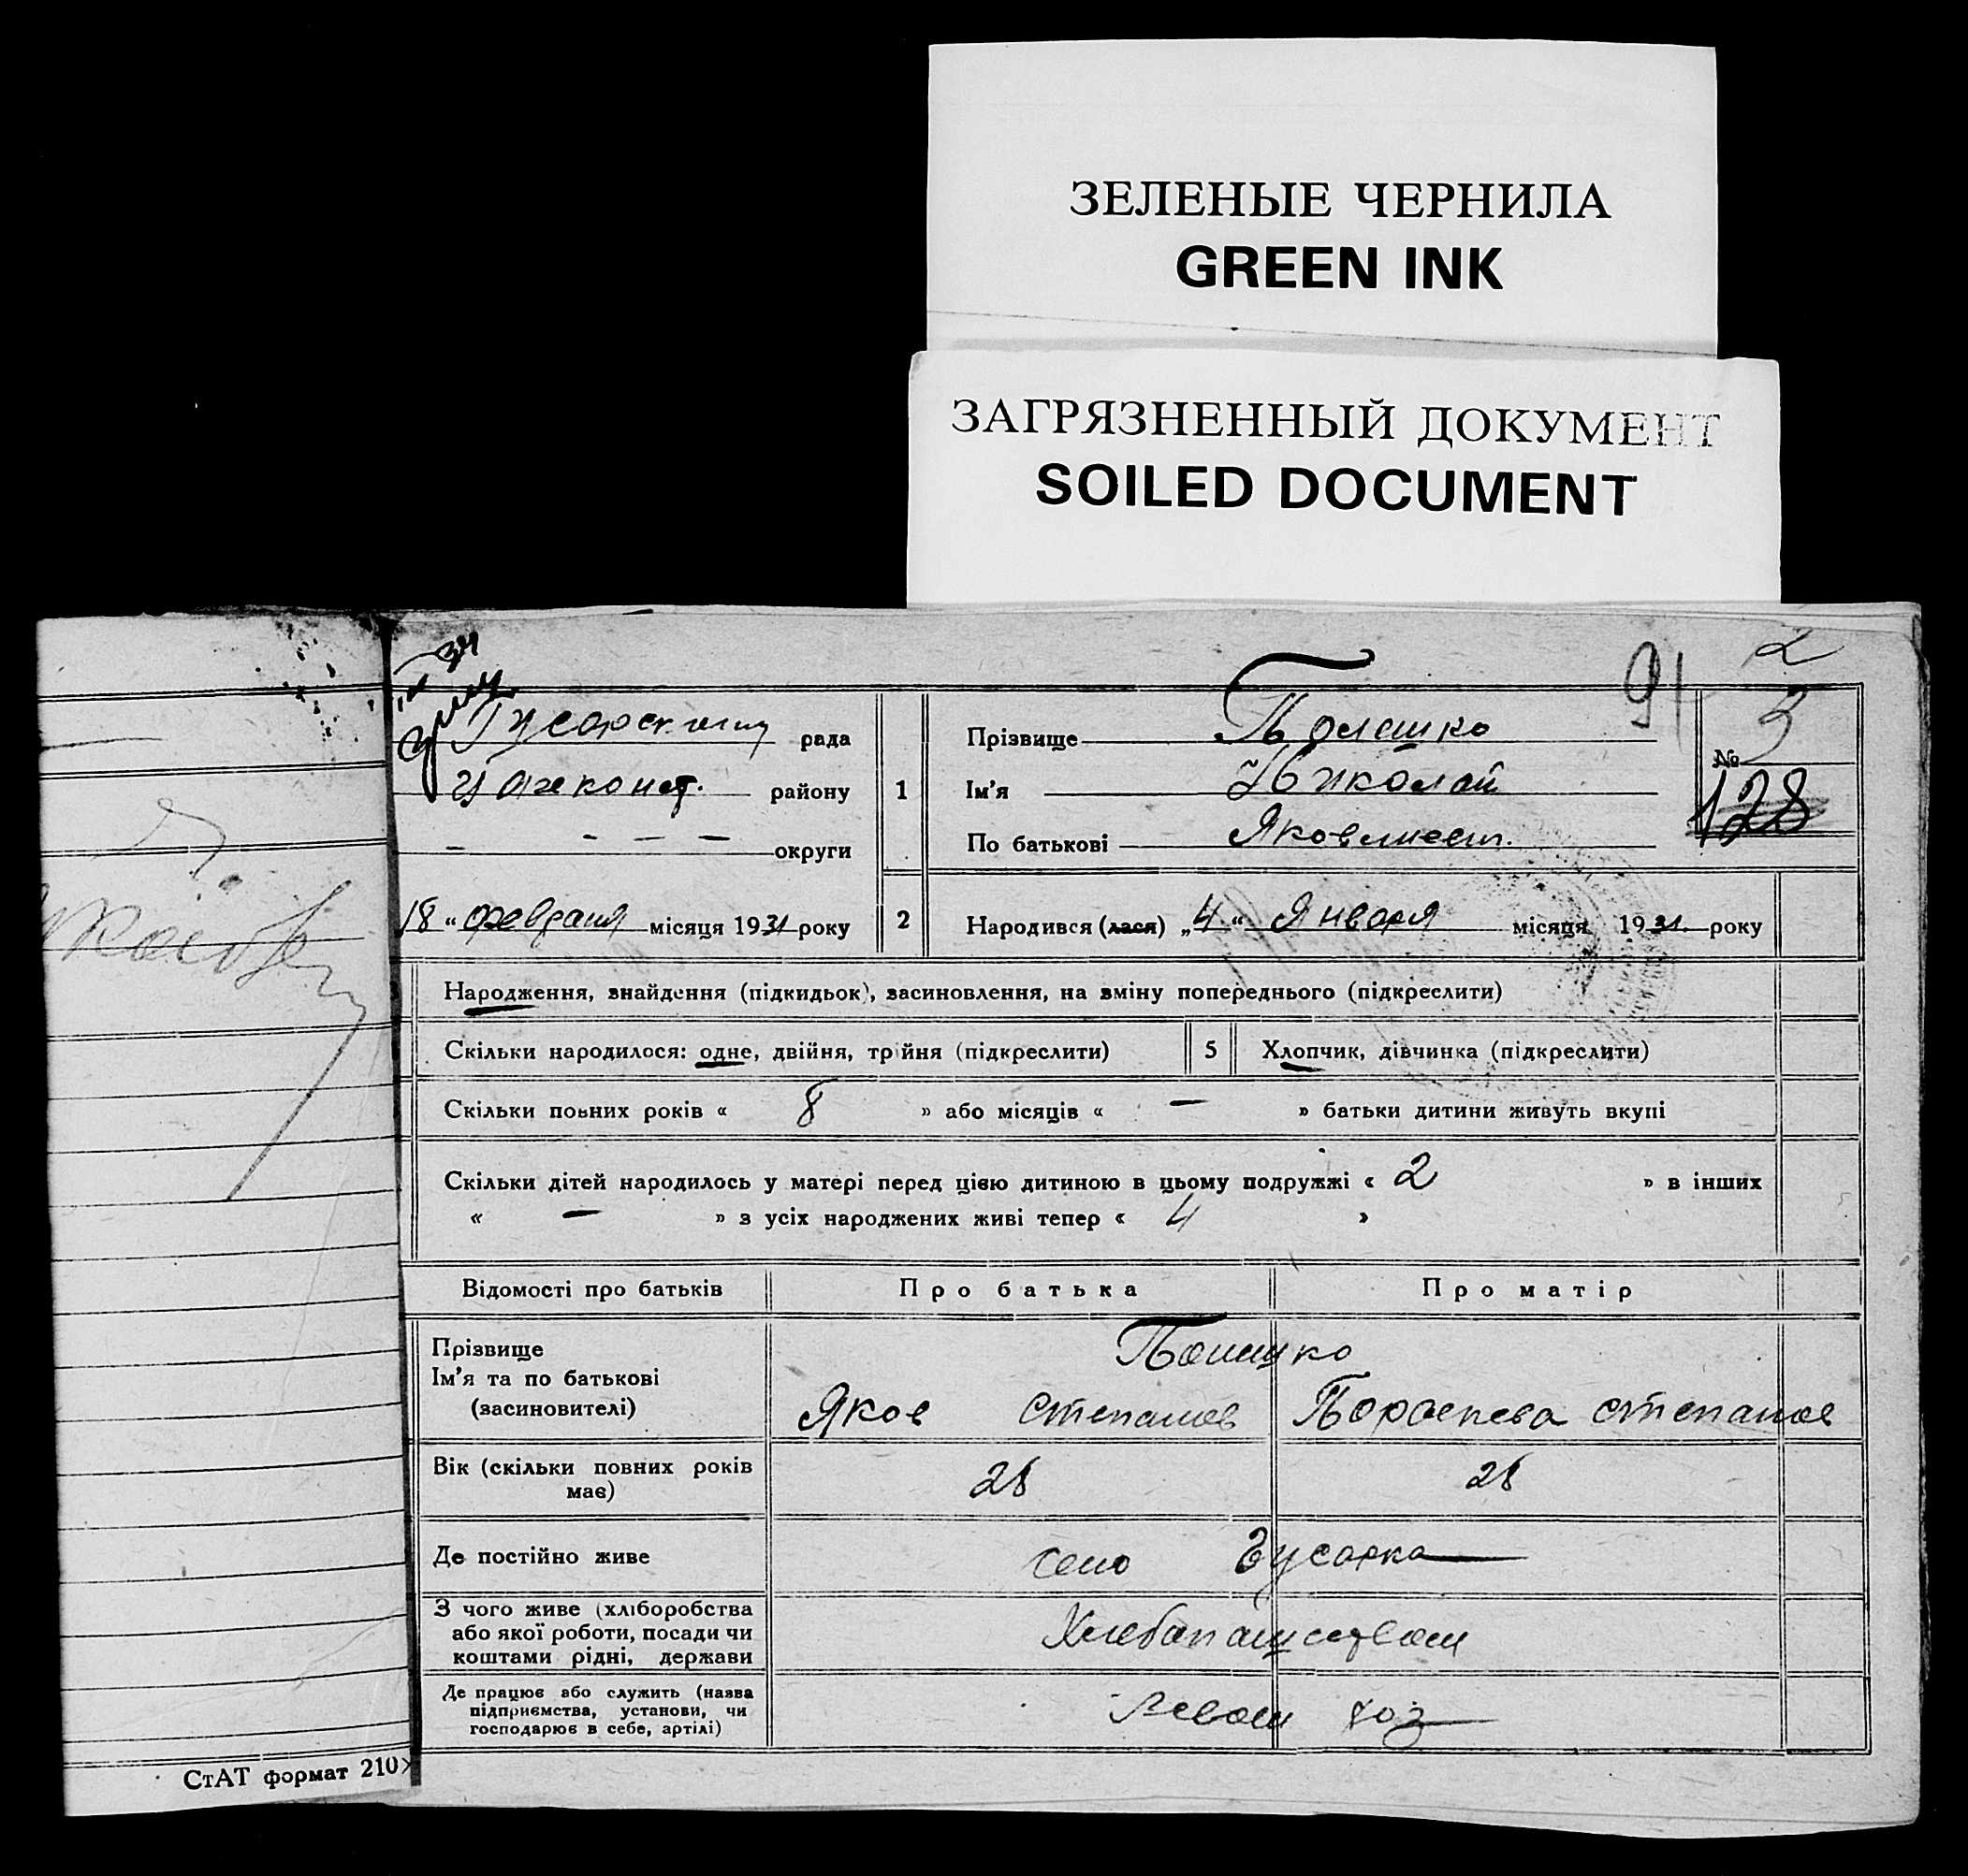 ЗЕЛЕНЫЕ ЧЕРНИЛА
GREEN INK
ЗАГРЯЗНЕННЫЙ ДОКУМЕНТ
SOILED DOCUMENT
91 2
рада
району
округи
18 " февраля місяця 1931 року
1
Прізвище
Ім'я Николай
По батькові
№ 3
128
2
Народився (лася) „4" Января місяця 1931. року
Народження, знайдення (підкидьок), засиновлення, на зміну попереднього (підкреслити)
Скільки народилося: одне, двійня, трійня (підкреслити) 5 Хлопчик, дівчинка (підкреслити)
Скільки повних років « 8 » або місяців « — » батьки дитини живуть вкупі
Скільки дітей народилось у матері перед цією дитиною в цьому подружжі « 2 » в інших
« — » з усіх народжених живі тепер « 4 »
Відомості про батьків Про батька Про матір
Прізвище
Ім'я та по батькові
(засиновителі)
Яков Степанов Степанов
Вік (скільки повних років
має)
28 28
Де постійно живе село Гусарка
З чого живе (хліборобства
або якої роботи, посади чи
коштами рідні, держави
Де працює або служить (назва
підприємства, установи, чи
господарює в себе, артілі)
СтАТ формат 210×